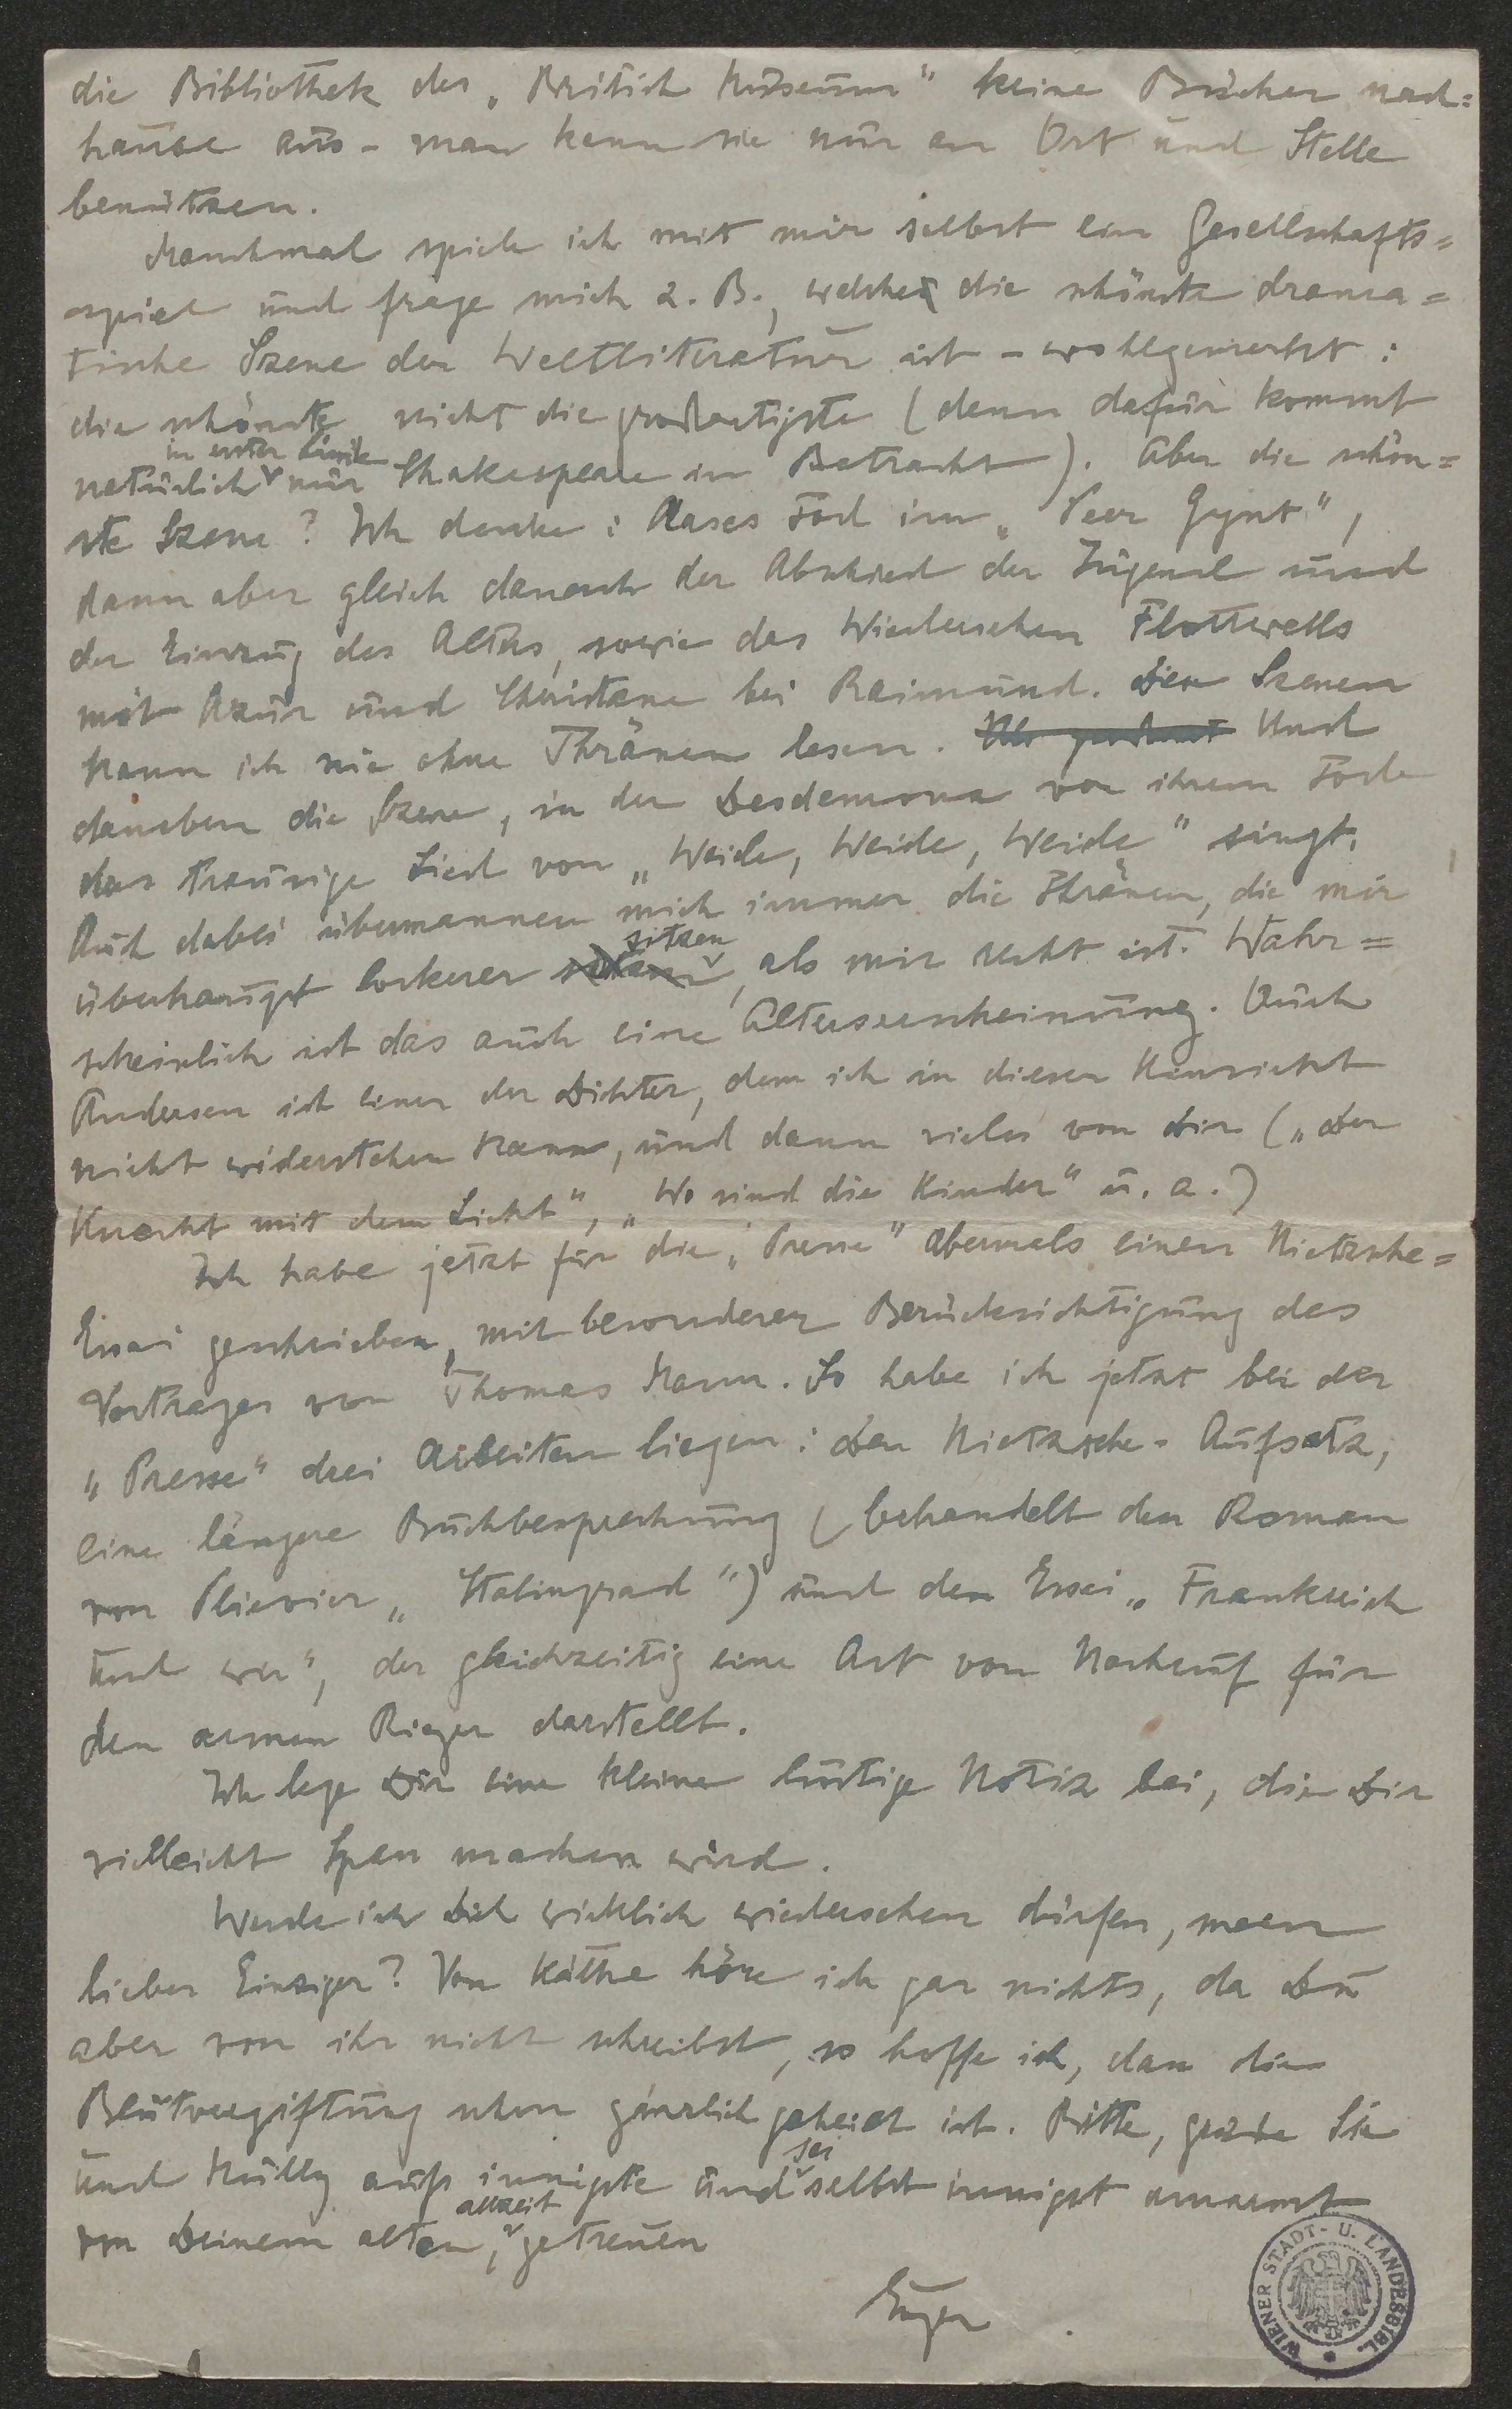 die Bibliothek des „British Museum“ keine Bücher nach=
hause aus – man kann sie nur an Ort und Stelle
benützen.
Manchmal spiele ich mit mir selbst ein Gesellschafts=
spiel und frage mich z. B., welches die schönste drama=
tische Szene der Weltliteratur ist – wohlgemerkt:
die schönste, nicht die großartigste (denn dafür kommt
in erster Linie
natürlich nur Shakespeare in Betracht). Aber die schön=
ste Szene? Ich denke: Aases Tod im „Peer Gynt“,
dann aber gleich danach der Abschied der Jugend und
der Einzug des Alters, sowie das Wiedersehen Flottwells
mit Azur und Cheristane bei Raimund. Die Szenen
kann ich nie ohne Thränen lesen. Und
daneben die Szene, in der Desdemona vor ihrem Tode
das traurige Lied von „Weide, Weide, Weide“ singt.
Auch dabei übermannen mich immer die Thränen, die mir
sitzen
überhaupt lockerer, als mir recht ist. Wahr=
scheinlich ist das auch eine Alterserscheinung. Auch
Andersen ist einer der Dichter, dem ich in dieser Hinsicht
nicht widerstehen kann, und dann vieles von Dir („Der
Knecht mit dem Licht“, „Wo sind die Kinder“ u. a.)
Ich habe jetzt für die „Presse“ abermals einen Nietzsche=
Essai geschrieben, mit besonderer Berücksichtigung des
Vortrages von Thomas Mann. So habe ich jetzt bei der
„Presse“ drei Arbeiten liegen: den Nietzsche-Aufsatz,
eine längere Buchbesprechung (behandelt den Roman
von Plievier „Stalingrad“) und den Essai „Frankreich
und wir“, der gleichzeitig eine Art von Nachruf für
den armen Rieger darstellt.
Ich lege Dir eine kleine lustige Notiz bei, die Dir
vielleicht Spass machen wird.
Werde ich Dich wirklich wiedersehen dürfen, mein
lieber Einziger? Von Käthe höre ich gar nichts, da Du
aber von ihr nicht schreibst, so hoffe ich, dass die
Blutvergiftung schon gänzlich geheilt ist. Bitte, grüße Sie
sei
und Mully aufs innigste und selbst innigst umarmt
allzeit
von Deinem alten, getreuen
Eugen
WIENER STADT- U. LANDESBIBL.